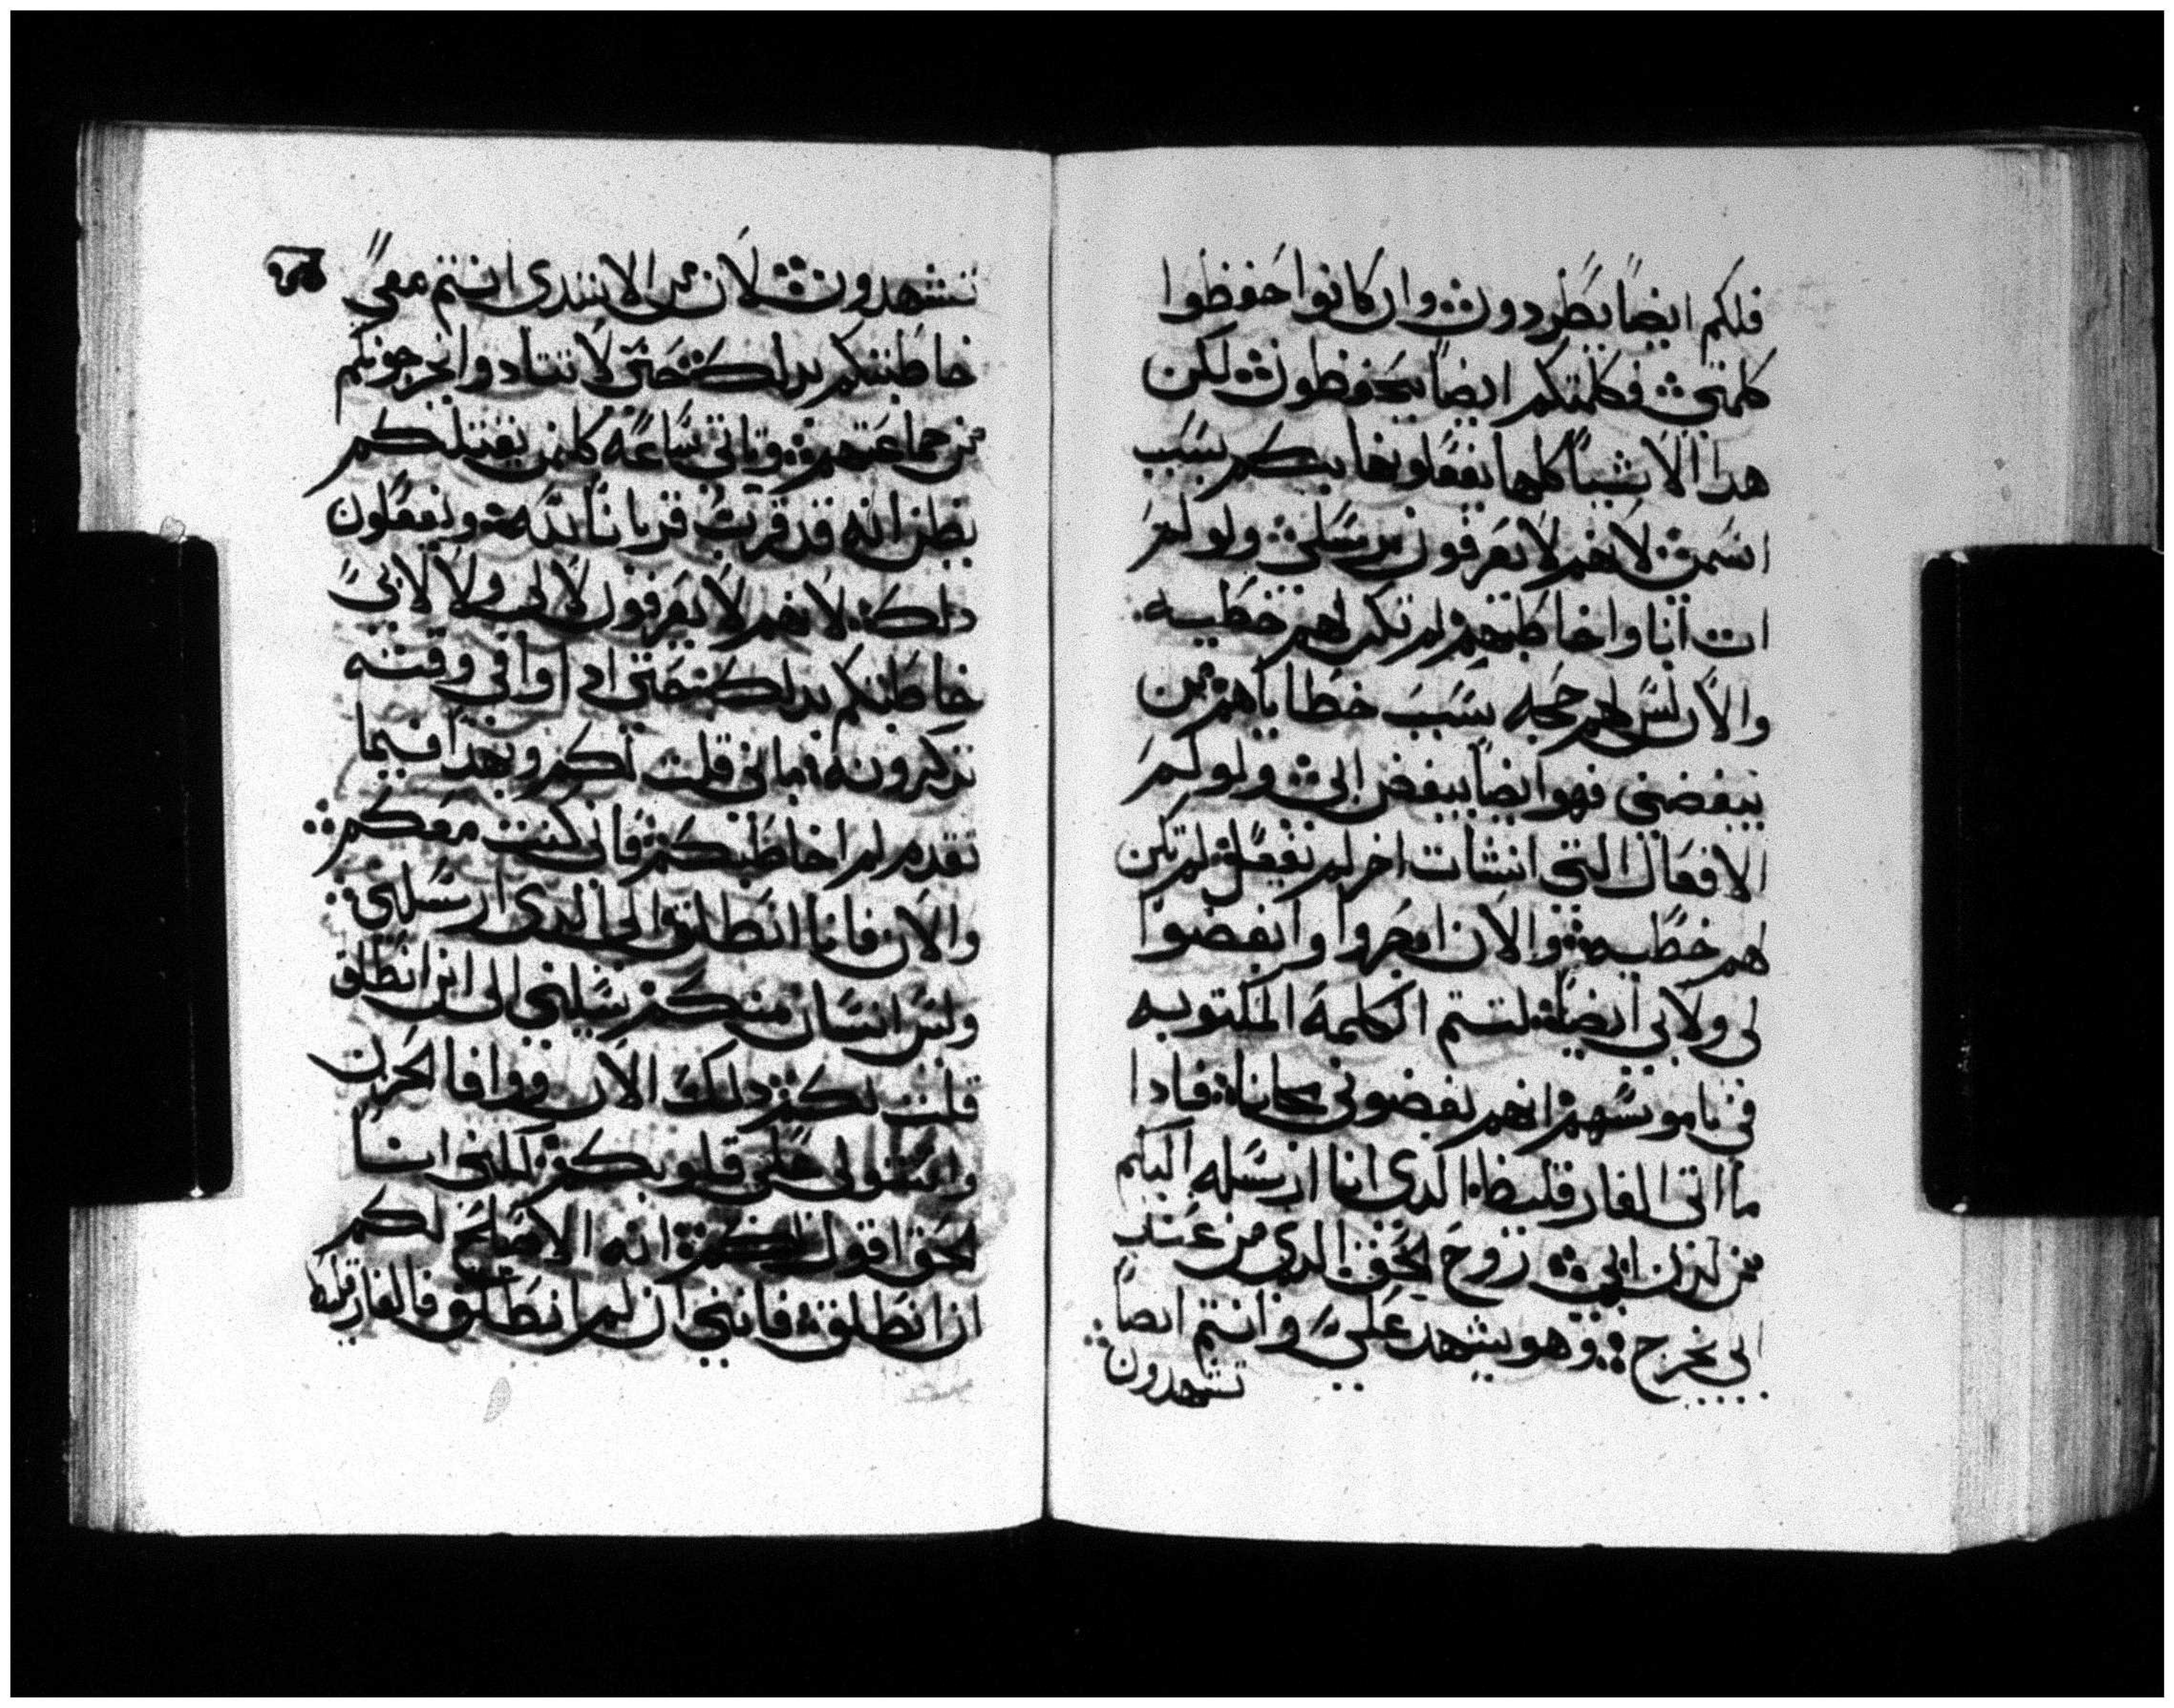 فلكم ايضاً يطردون وان كانوا حفظوا
كلمتي فكلمتكم ايضاً يحفظون لكن
هدا الاشيا كلها يفعلو بكم بسبب
اسمي لانهم لا يعرفون من رسلني ولو لم
ات انا واخاطبهم لم تكن لهم خطيه
والان ليس لهم حجه بسبب خطاياهم من
يبغضني فهو ايضاً يبغض ابي ولو لم
الافعال التي انشات اخر لم تفعل لم تكن
لهم خطيه والان ابصروا وابغضوا
لي ولابي ايضاً لتتم الكلمة المكتوبه
في ناموسهم انهم بغضوني مجاناً فادا
ما اتى الفارقليط الدي انا ارسله اليكم
من لدن ابي روح الحق الدي من عند
ابي يخرج وهو يشهد علي وانتم ايضاً
تشهدون
تشهدون لان من الابتدى انتم معي
خاطبتكم بدلك حتى لا تتادوا يخرجونكم
من جماعتهم وتاتي ساعه كلمن يقتلكم
يظن انه قد قرب قرباناً لله ويفعلون
دلك لانهم لا يعرفون لا لي ولا لابي
خاطبتكم بدلك حتى ادا وافى وقته
تدكرونه باني قلت لكم وبهدا فيما
تقدم لم اخاطبكم فاني كنت معكم
والان فانا انطلق الى الدي ارسلني
وليس انسان منكم يسلني الى اين انطلق
قلت لكم دلك الان ووافا الحزن
واستولى على قلوبكم لكنني انا
الحق اقول لكم انه الاصلح لكم
ان انطلق فانني ان لم انطلق فالفارقليط